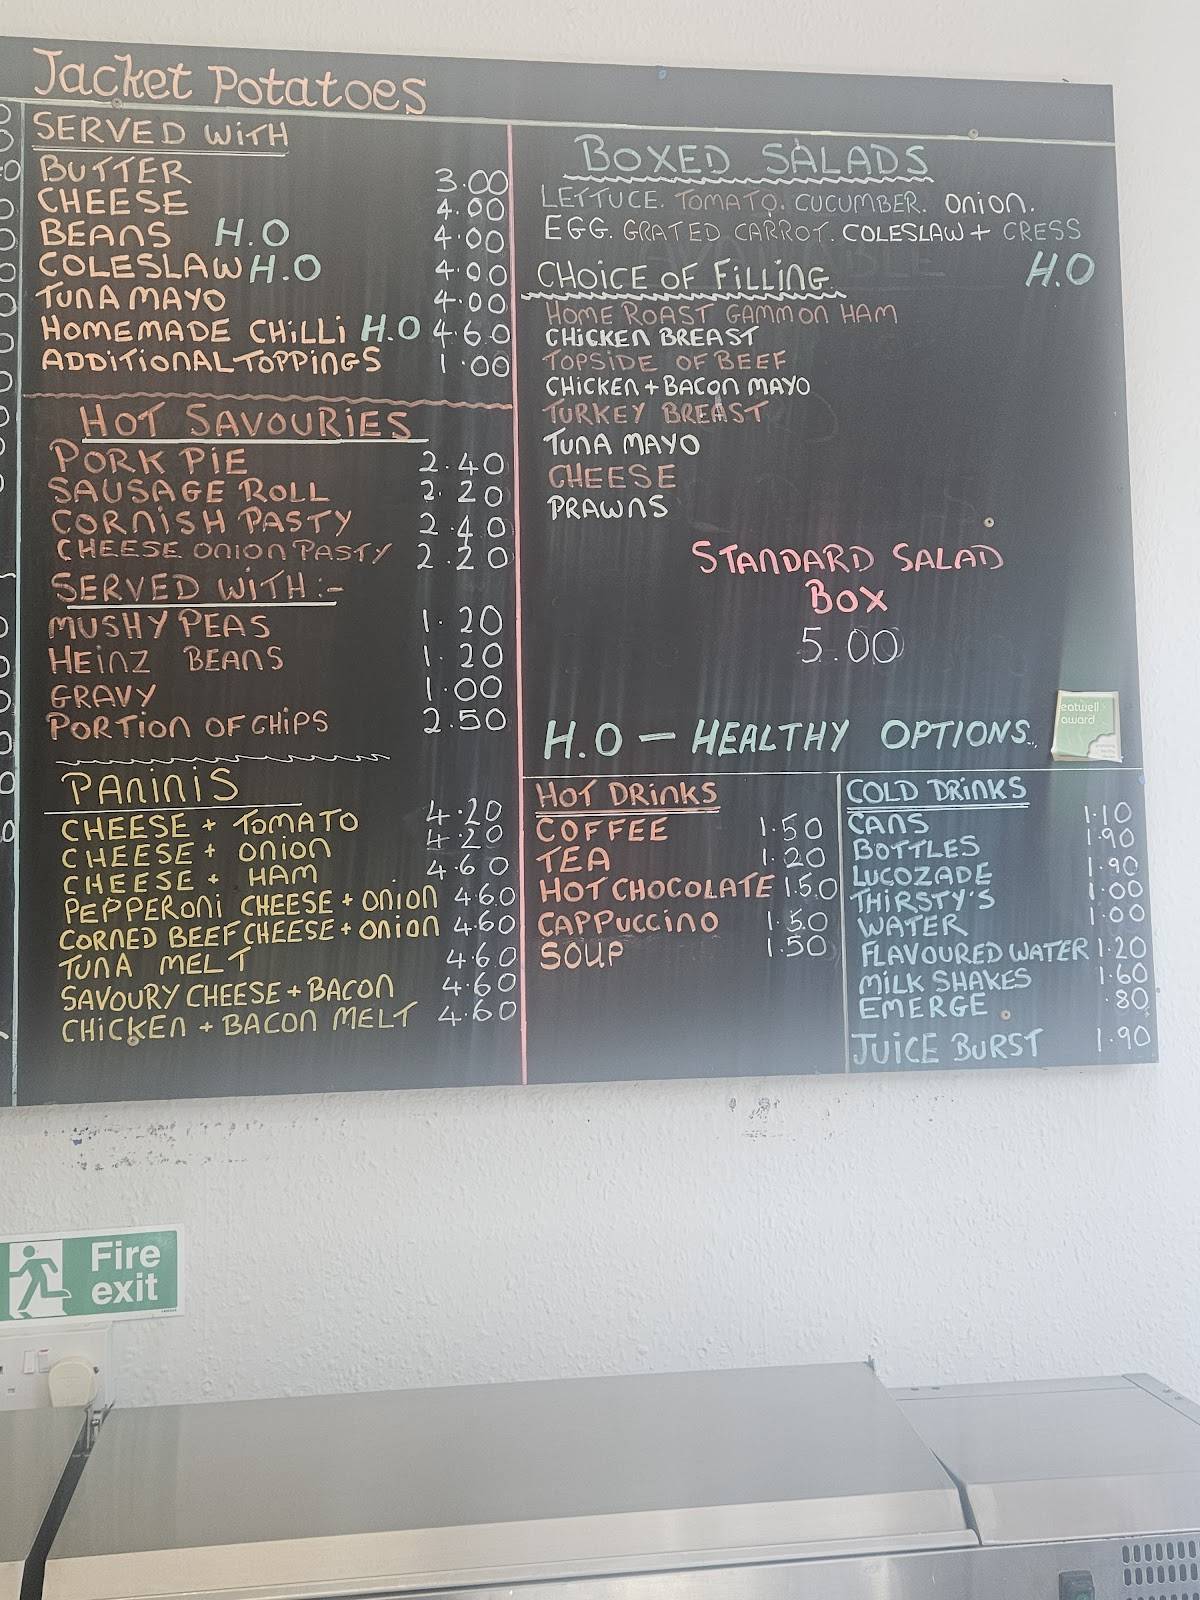 Jacket Potatoes
SERVED WITH
BUTTER 3.00
CHEESE 4.00
BEANS H.O 4.00
COLESLAW H.O 4.00
TUNA MAYO 4.00
HOMEMADE CHILLI H.O 4.60
ADDITIONAL TOPPINGS 1.00
HOT SAVOURIES
PORK PIE 2.40
SAUSAGE ROLL 2.20
CORNISH PASTY 2.40
CHEESE ONION PASTY 2.20
SERVED WITH:-
MUSHY PEAS 1.20
HEINZ BEANS 1.20
GRAVY 1.00
PORTION OF CHIPS 2.50
PANINIS
CHEESE + TOMATO 4.20
CHEESE + ONION 4.20
CHEESE + HAM 4.60
PEPPERONI CHEESE + ONION 4.60
CORNED BEEF CHEESE + ONION 4.60
TUNA MELT 4.60
SAVOURY CHEESE + BACON 4.60
CHICKEN + BACON MELT 4.60
BOXED SALADS
LETTUCE. TOMATO. CUCUMBER. ONION.
EGG. GRATED CARROT. COLESLAW + CRESS
CHOICE OF FILLING H.O
HOME ROAST GAMMON HAM
CHICKEN BREAST
TOPSIDE OF BEEF
CHICKEN + BACON MAYO
TURKEY BREAST
TUNA MAYO
CHEESE
PRAWNS
STANDARD SALAD
BOX
5.00
H.O — HEALTHY OPTIONS..
eatwell
award
HOT DRINKS
COFFEE 1.50
TEA 1.20
HOT CHOCOLATE 1.50
CAPPUCCINO 1.50
SOUP 1.50
COLD DRINKS
CANS 1.10
BOTTLES 1.90
LUCOZADE 1.90
THIRSTY'S 1.00
WATER 1.00
FLAVOURED WATER 1.20
MILK SHAKES 1.60
EMERGE .80
JUICE BURST 1.90
Fire
exit